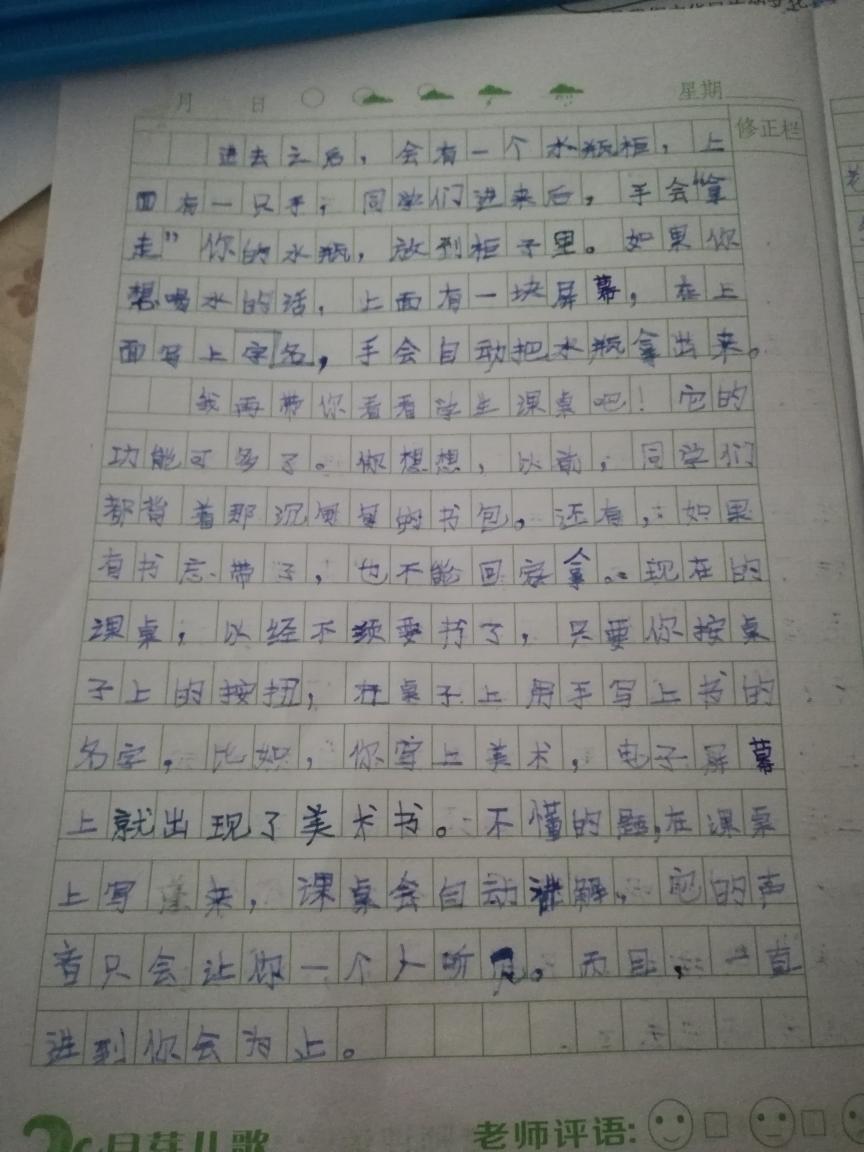 月 日 星期
修正栏
进去之后，会有一个水瓶柜，上
面有一只手，同学们进来后，手会“拿
走”你的水瓶，放到柜子里。如果你
想喝水的话，上面有一块屏幕，在上
面写上字名，手会自动把水瓶拿出来。
我再带你看看学生课桌吧！它的
功能可多了。你想想，以前，同学们
都背着那沉重的书包。还有，如果
有书忘带了，也不能回家拿。现在的
课桌，以经不须要书了，只要你按桌
子上的按扭，在桌子上用手写上书的
名字，比如，你写上美术，电子屏幕
上就出现了美术书。不懂的题，在课桌
上写 来，课桌会自动讲解。它的声
音只会让你一个人听见。而且，一直
讲到你会为止。
月芽儿歌
老师评语: